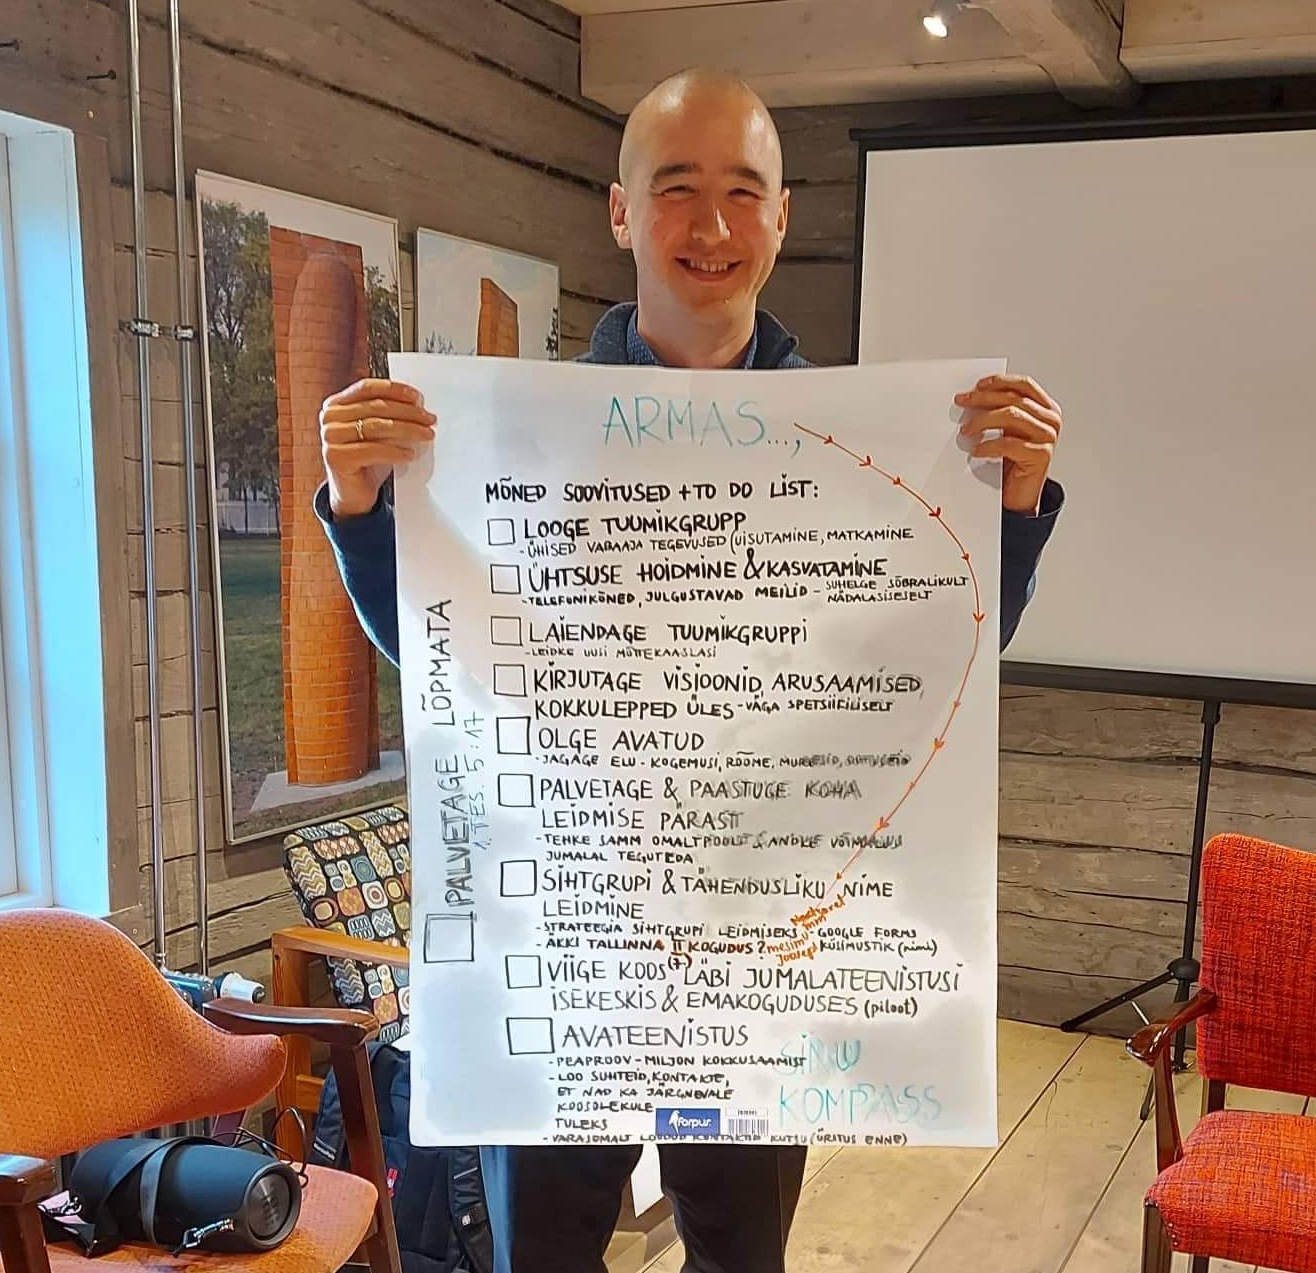 ARMAS...,
MÕNED SOOVITUSED + TO DO LIST:
LOOGE TUUMIKGRUPP
- ÜHISED VABAAJA TEGEVUSED (UISUTAMINE, MATKAMINE
ÜHTSUSE HOIDMINE & KASVATAMINE
- TELEFONIKÕNED, JULGUSTAVAD MEILID - SUHELGE SÕBRALIKULT
NÄDALASISESELT
LAIENDAGE TUUMIKGRUPPI
- LEIDKE UUSI MÕTTEKAASLASI
KIRJUTAGE VISIOONID, ARUSAAMISED,
KOKKULEPPED ÜLES - VÄGA SPETSIIFILISELT
OLGE AVATUD
- JAGAGE ELU - KOGEMUSI, RÕÕME, MURESID,
PALVETAGE & PAASTUGE KOHA
LEIDMISE PÄRAST
- TEHKE SAMM OMALTPOOLT & ANDKE VÕIMALUS
JUMALAL TEGUTEDA
SIHTGRUPI & TÄHENDUSLIKU NIME
LEIDMINE
- STRATEEGIA SIHTGRUPI LEIDMISEKS - GOOGLE FORMS
- ÄKKI TALLINNA II KOGUDUS? KÜSIMUSTIK (nimi)
VIIGE KOOS (+) LÄBI JUMALATEENISTUSI
ISEKESKIS & EMAKOGUDUSES (piloot)
AVATEENISTUS
- PEAPROOV - MILJON KOKKUSAAMIST
- LOO SUHTEID, KONTAKTE,
ET NAD KA JÄRGNEVALE
KOOSOLEKULE
TULEKS
- VARASEMALT LOODUD KONTAKTID KUTSU (ÜRITUS ENNE)
PALVETAGE LÕPMATA
1. TES. 5:17
SINU
KOMPASS
forpus